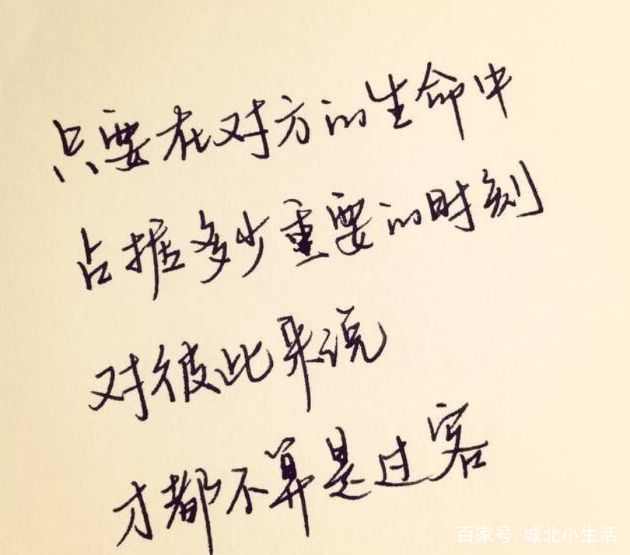 只要在对方的生命中
占据多少重要的时刻
对彼此来说
才都不算是过客
百家号/城北小生活